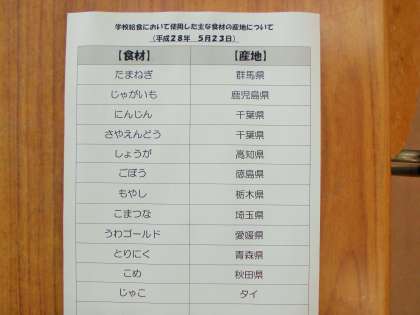 学校給食において使用した主な食材の産地について
（平成２８年　５月２３日）
【食材】　【産地】
たまねぎ　群馬県
じゃがいも　鹿児島県
にんじん　千葉県
さやえんどう　千葉県
しょうが　高知県
ごぼう　徳島県
もやし　栃木県
こまつな　埼玉県
うわゴールド　愛媛県
とりにく　青森県
こめ　秋田県
じゃこ　タイ